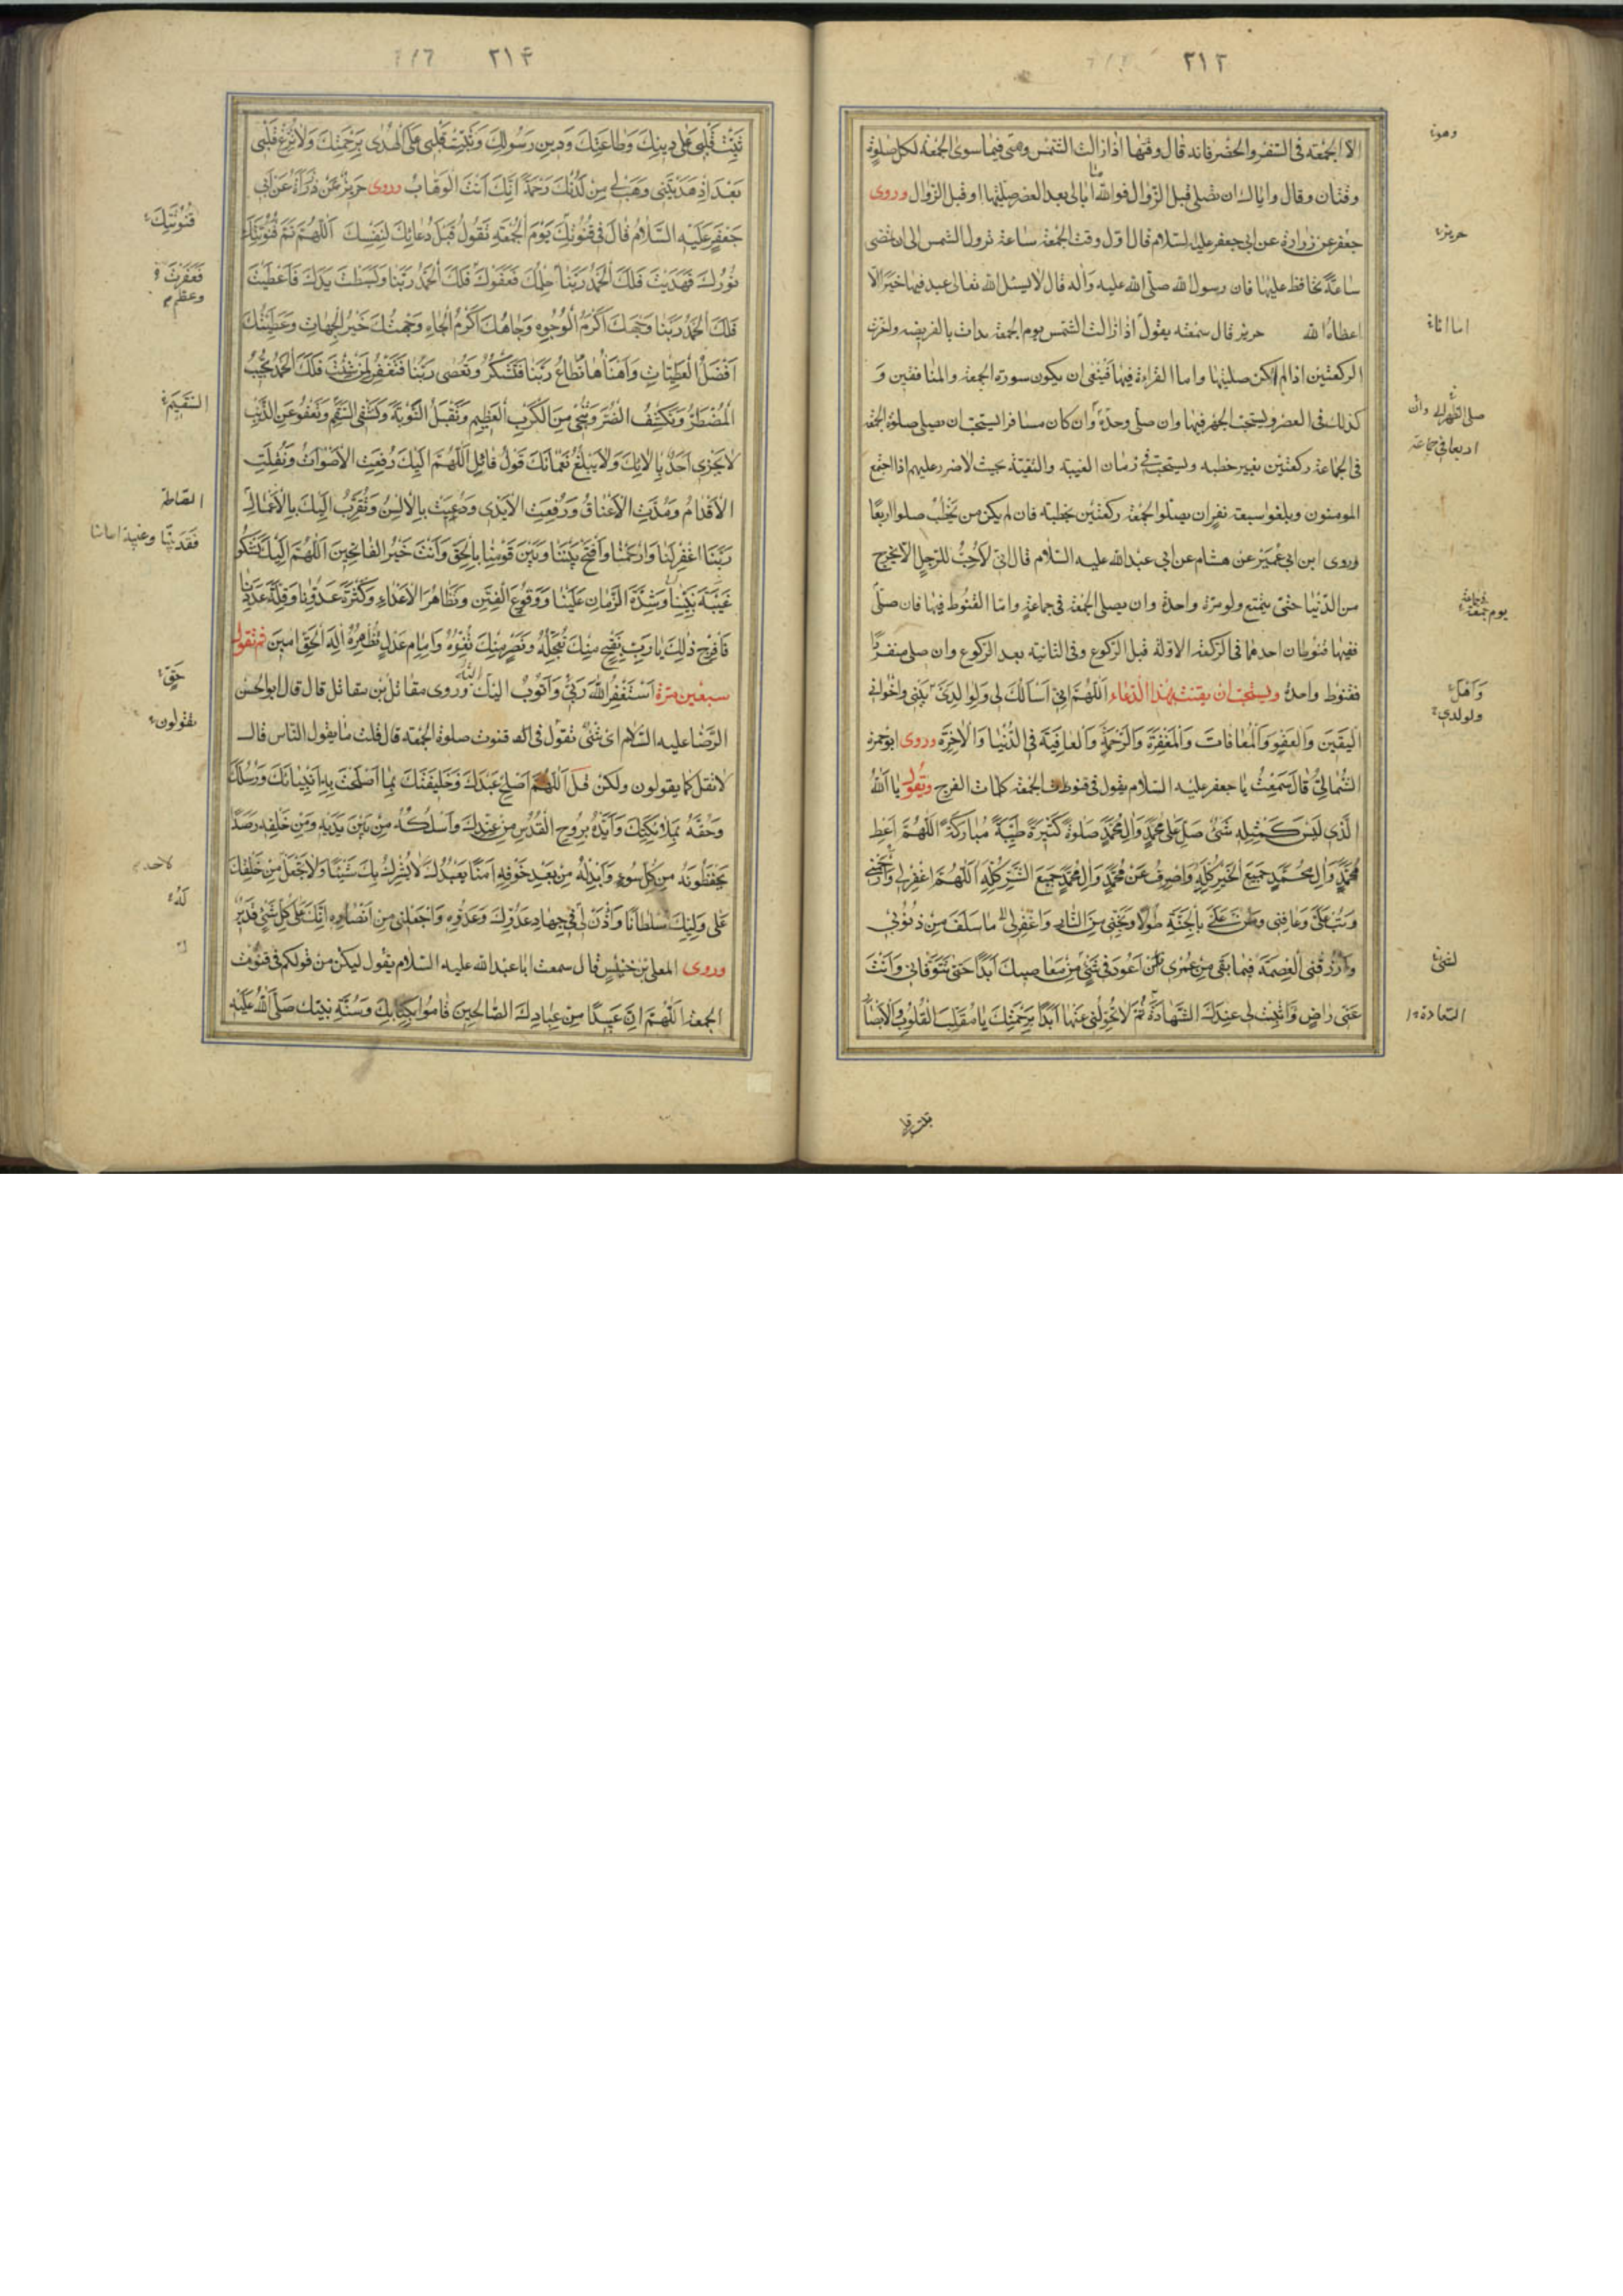 ٢١٢
الا الجمعة فى السفر والحضر فانه قال وقتها اذا زالت الشمس وهى فيما سوى الجمعة لكل صلوة
وقتان وقال واياك ان تصلى قبل الزوال فوالله ما ابالى بعد العصر صليتها او قبل الزوال وروى
جعفر عن زرارة عن ابى جعفر عليه السلام قال اول وقت الجمعة ساعة تزول الشمس الى ان تمضى
ساعة تحافظ عليها فان رسول الله صلى الله عليه واله قال لا يسئل الله تعالى عبد فيها خيرا الا
اعطاه الله حريز قال سمعته يقول اذا زالت الشمس يوم الجمعة بدات بالفريضه واخرت
الركعتين اذا لم اكن صليتها واما القراءة فيها فينبغى ان يكون سورة الجمعة والمنافقين و
كذلك فى العصر ويستحب الجهر فيها وان صلى وحده وان كان مسافرا يستحب ان يصلى صلوة الجمعة
فى الجماعة ركعتين بغير خطبه ويستحب فى زمان الغيبة والتقية بحيث لا ضرر عليهم اذا اجتمع
المومنون وبلغوا سبعة نفر ان يصلوا الجمعة ركعتين بخطبة فان لم يكن من يخطب صلوا اربعا
وروى ابن ابى عمير عن هشام عن ابى عبد الله عليه السلام قال انى لاحب للرجل الا يخرج
من الدنيا حتى يتمتع ولو مرة واحدة وان يصلى الجمعة فى جماعة واما القنوط فيها فان صلى
ففيها قنوطان احدهما فى الركعة الاولة قبل الركوع وفى الثانية بعد الركوع وان صلى منفردا
فقنوط واحد ويستحب ان يقنت بهذا الدعاء اَللّٰهُمَّ اِنّى اَسْاَلُكَ لى وَلِوالِدَىَّ بَيْتى وَاِخْوانى
اليَقينَ وَالعَفْوَ وَالْمُعافاتَ وَالْمَغْفِرَةَ وَالرَّحْمَةَ وَالعافِيَةَ فى الدُّنْيا وَالاخِرَة وروى ابو حمزة
الثُّمالِىُّ قالَ سَمِعْتُ يا جعفر عليه السلام يقول فى قنوط الجمعة كلمات الفرج ويقول يا اَللهُ
الَّذى لَيْسَ كَمِثْلِهِ شَىْءٌ صَلِّ عَلى مُحَمَّدٍ وَالِ مُحَمَّدٍ صَلوةً كَثيرَةً طَيِّبَةً مُبارَكَةً اَللّٰهُمَّ اَعْطِ
مُحَمَّدًا وَالَ مُحَمَّدٍ جَميعَ الْخَيْرِ كُلِّهِ وَاصْرِفْ عَنْ مُحَمَّدٍ وَالِ مُحَمَّدٍ جَميعَ الشَّرِّ كُلِّهِ اَللّٰهُمَّ اغْفِرْ لى وَارْحَمْنى
وَتُبْ عَلَىَّ وَعافِنى وَمُنَّ عَلَىَّ بِالْجَنَّةِ طَوْلًا وَنَجِّنى مِنَ النّارِ وَاغْفِرْ لى ما سَلَفَ مِنْ ذُنُوبى
وَارْزُقْنى الْعِصْمَةَ فيما بَقِىَ مِنْ عُمْرى مِنْ اَنْ اَعُودَ فى شَىْءٍ مِنْ مَعاصيكَ اَبَدًا حَتّى تَتَوَفّانى وَاَنْتَ
عَنّى راضٍ وَاَثْبِتْ لى عِنْدَكَ الشَّهادَةَ ثُمَّ لا تُحَوِّلْنى عَنْها اَبَدًا بِرَحْمَتِكَ يا مُقَلِّبَ الْقُلُوبِ وَالْاَبْصارِ
حريز
صلى الظهر وان
اربعا فى جماعة
يوم جمعة
وَاَهْلِ
ولولدى
السعادة
٢١٣
ثَبِّتْ قَلْبى عَلى دينِكَ وَطاعَتِكَ وَدينِ رَسُولِكَ وَثَبِّتْ قَلْبى عَلَى الْهُدى بِرَحْمَتِكَ وَلا تُزِغْ قَلْبى
بَعْدَ اِذْ هَدَيْتَنى وَهَبْ لى مِنْ لَدُنْكَ رَحْمَةً اِنَّكَ اَنْتَ الوَهّابُ وروى حَريزٌ عَنْ زُرارَةَ عَنْ اَبى
جَعْفَرٍ عَلَيْهِ السَّلامُ قالَ فى قُنُوتِكَ يَوْمَ الْجُمْعَةِ تَقُولُ قَبْلَ دُعائِكَ لِنَفْسِكَ اَللّٰهُمَّ تَمَّ قُنُوتِكَ
نُورُكَ فَهَدَيْتَ فَلَكَ الْحَمْدُ رَبَّنا حِلْمُكَ فَعَفَوْتَ فَلَكَ الْحَمْدُ رَبَّنا وَبَسَطْتَ يَدَكَ فَاَعْطَيْتَ
فَلَكَ الْحَمْدُ رَبَّنا وَجْهُكَ اَكْرَمُ الْوُجُوهِ وَجاهُكَ اَكْرَمُ الْجاهِ وَجِهَتُكَ خَيْرُ الْجِهاتِ وَعَطِيَّتُكَ
اَفْضَلُ الْعَطِيّاتِ وَاَهْنَاُها تُطاعُ رَبَّنا فَتَشْكُرُ وَتُعْصى رَبَّنا فَتَغْفِرُ لِمَنْ شِئْتَ فَلَكَ الْحَمْدُ تُجيبُ
الْمُضْطَرَّ وَتَكْشِفُ الضُّرَّ وَتُنَجّى مِنَ الْكَرْبِ الْعَظيمِ وَتَقْبَلُ التَّوْبَةَ وَتَشْفِى السَّقَمَ وَتَعْفُو عَنِ الذَّنْبِ
لا يَجْزى اَحَدٌ بِالائِكَ وَلا يَبْلُغُ نَعْمائَكَ قَوْلُ قائِلٍ اَللّٰهُمَّ اِلَيْكَ رُفِعَتِ الْاَصْواتُ وَنُقِلَتِ
الْاَقْدامُ وَمُدَّتِ الْاَعْناقُ وَرُفِعَتِ الْاَيْدى وَدُعِيَتْ بِالْاَلْسُنِ وَتُقُرِّبَ اِلَيْكَ بِالْاَعْمالِ
رَبَّنَا اغْفِرْ لَنا وَارْحَمْنا وَافْتَحْ بَيْنَنا وَبَيْنَ قَوْمِنا بِالْحَقِّ وَاَنْتَ خَيْرُ الْفاتِحينَ اَللّٰهُمَّ اِلَيْكَ نَشْكُو
غَيْبَةَ نَبِيِّنا وَشِدَّةَ الزَّمانِ عَلَيْنا وَوُقُوعَ الْفِتَنِ وَتَظاهُرَ الْاَعْداءِ وَكَثْرَةَ عَدُوِّنا وَقِلَّةَ عَدَدِنا
فَافْرُجْ ذلِكَ يا رَبِّ بِفَتْحٍ مِنْكَ تُعَجِّلُهُ وَنَصْرٍ مِنْكَ تُعِزُّهُ وَاِمامِ عَدْلٍ تُظْهِرُهُ اِلهَ الْحَقِّ امينَ ثم تقول
سبعين مرة اَسْتَغْفِرُ اللهَ رَبّى وَاَتُوبُ اِلَيْهِ وروى مقاتل بن مقاتل قال قال ابو الحسن
الرضا عليه السلام اى شىء تقول فى قنوت صلوة الجمعة قال قلت ما يقول الناس قال
لا تقل كما يقولون ولكن قل اَللّٰهُمَّ اَصْلِحْ عَبْدَكَ وَخَليفَتَكَ بِما اَصْلَحْتَ بِهِ اَنْبِيائَكَ وَرُسُلَكَ
وَحُفَّهُ بِمَلائِكَتِكَ وَاَيِّدْهُ بِرُوحِ الْقُدُسِ مِنْ عِنْدِكَ وَاسْلُكْهُ مِنْ بَيْنِ يَدَيْهِ وَمِنْ خَلْفِهِ رَصَدًا
يَحْفَظُونَهُ مِنْ كُلِّ سُوءٍ وَاَبْدِلْهُ مِنْ بَعْدِ خَوْفِهِ اَمْنًا يَعْبُدُكَ لا يُشْرِكُ بِكَ شَيْئًا وَلا تَجْعَلْ مِنْ خَلْقِكَ
عَلى وَلِيِّكَ سُلْطانًا وَاْذَنْ لى فى جِهادِ عَدُوِّكَ وَعَدُوِّهِ وَاجْعَلْنى مِنْ اَنْصارِهِ اِنَّكَ عَلى كُلِّ شَىْءٍ قَديرٌ
وروى المعلى بن خنيس قال سمعت ابا عبد الله عليه السلام يقول ليكن من قولكم فى قنوت
الجمعة اَللّٰهُمَّ اِنَّ عَبيدًا مِنْ عِبادِكَ الصّالِحينَ قامُوا بِكِتابِكَ وَسُنَّةِ نَبِيِّكَ صَلَّى اللهُ عَلَيْهِ
قُنُوتِكَ
فَغَفَرْتَ
وعظم
السَّقيمَ
حَقٍّ
يقولون
لاحد
لَهُ